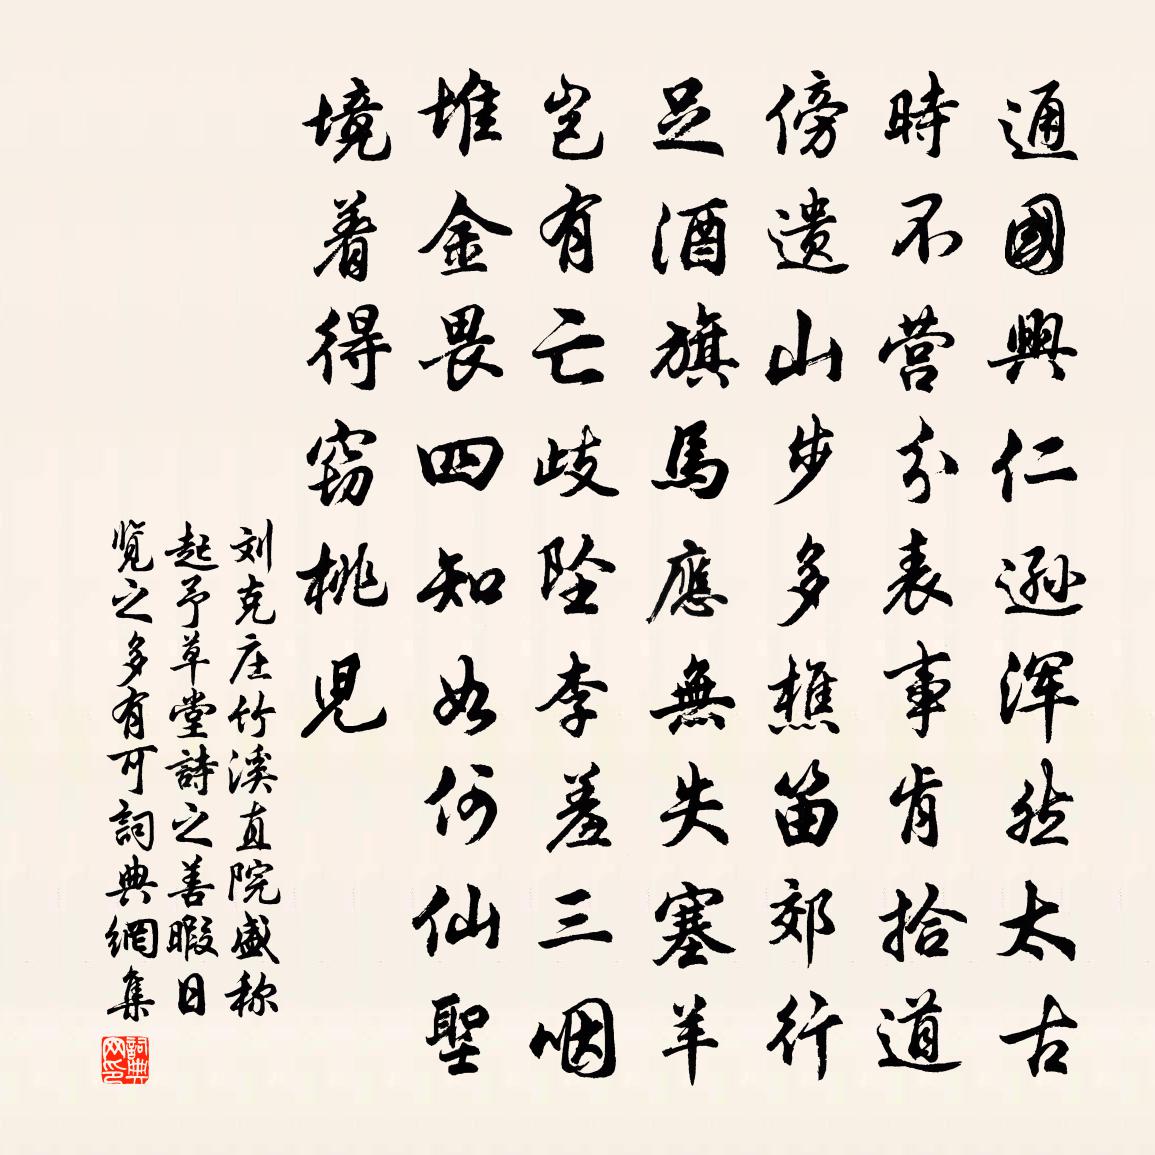 通國興仁遜浑然太古
時不营分表事肯拾道
傍遗山步多樵笛郊行
足酒旗馬應無失塞羊
岂有亡歧坠李羞三咽
堆金畏四知如何仙聖
境着得窃桃児
刘克庄竹溪直院盛称
起予草堂詩之善暇日
览之多有可詞典網集
詞典
网印